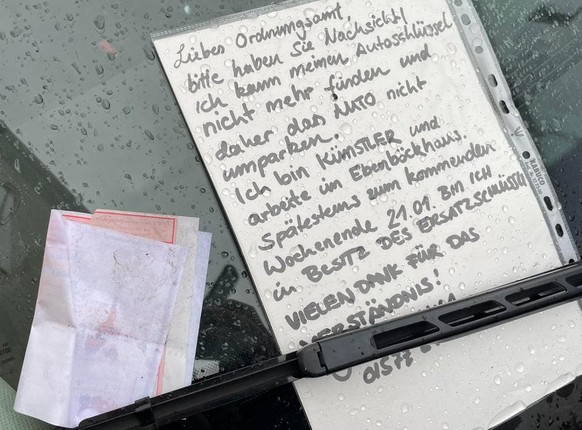 Liebes Ordnungsamt
bitte haben Sie Nachsicht!
Ich kann meinen Autoschlüssel
nicht mehr finden und
daher das AUTO nicht
umparken.
Ich bin KÜNSTLER und
arbeite im Ebenböckhaus.
Spätestens zum kommenden
Wochenende 21.01. BIN ICH
in BESITZ DES ERSATZSCHLÜSSELS
VIELEN DANK FÜR DAS
VERSTÄNDNIS!
0157